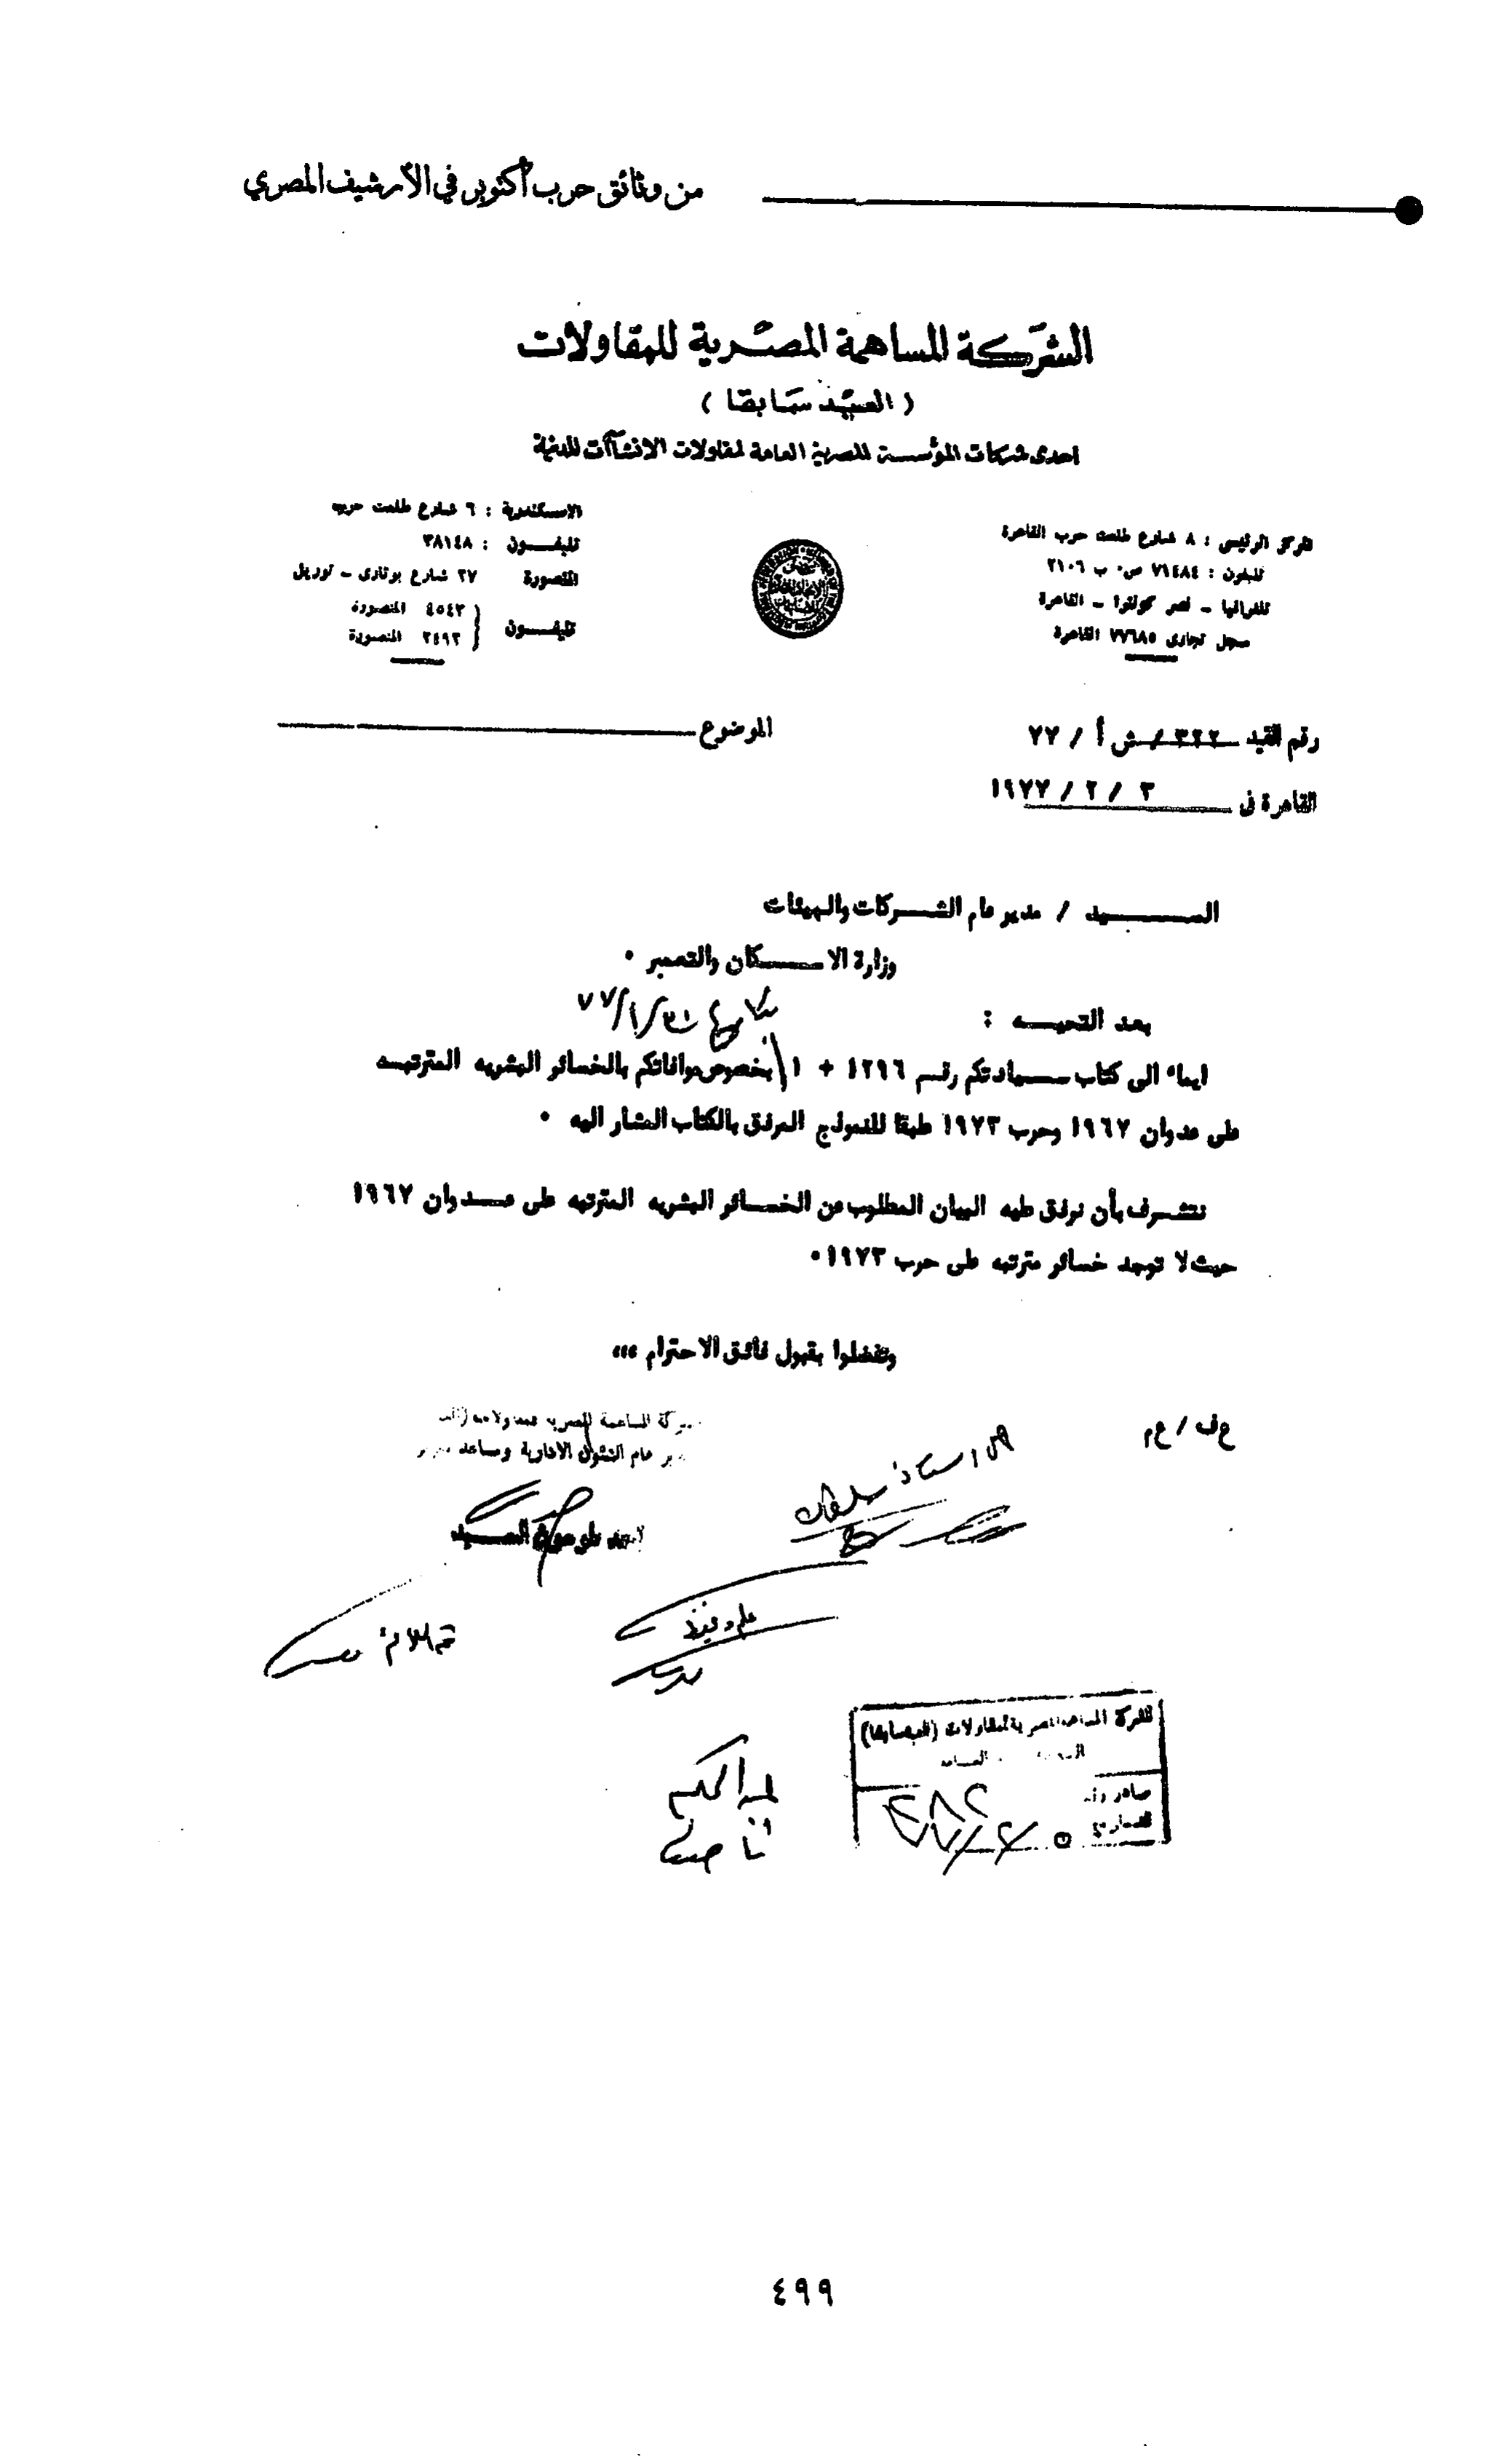 من وثائق حرب أكتوبر في الأرشيف المصري
الشركة المساهمة المصرية للمقاولات
( العبد سابقا )
احدى شركات المؤسسة المصرية العامة لمقاولات الانشاآت المدنية
المركز الرئيسى : ٨ شارع طلعت حرب القاهرة
تليفون : ٧١٤٨٤ ص٠ ب ٢١٠٦
تلغرافيا - نصر كونترا - القاهرة
سجل تجارى ٧٧٦٨٥ القاهرة
الاسكندرية : ٦ شارع طلعت حرب
تليفون : ٣٨١٤٨
المنصورة ٢٧ شارع بوتارى - توريل
تليفون ٤٥٤٢ المنصورة
٢٤٩٢ المنصورة
رقم القيد ٣٢٢ / ش أ / ٧٧
الموضوع
القاهرة فى ٣ / ٢ / ١٩٧٧
الســيد / مدير عام الشركات والهيئات
وزارة الاسكان والتعمير ٠
بعد التحيـه :
٧٧/١/٣١
ايماء الى كتاب سيادتكم رقم ١٢٩٦ + ١ بخصوص موافاتكم بالخسائر البشريه المترتبه
على عدوان ١٩٦٧ وحرب ١٩٧٣ طبقا للنموذج المرفق بالكتاب المشار اليه ٠
نتشرف بأن نرفق طيه البيان المطلوب عن الخسائر البشريه المترتبه على عدوان ١٩٦٧
حيث لا توجد خسائر مترتبه على حرب ١٩٧٣٠
وتفضلوا بقبول فائق الاحترام ،،،
ع ف / ع م
عام الشئون الادارية ومساعد
الشركة المساهمة المصرية لمقاولات (العبد سابقا)
صادر رقم
التاريخ
٤٩٩